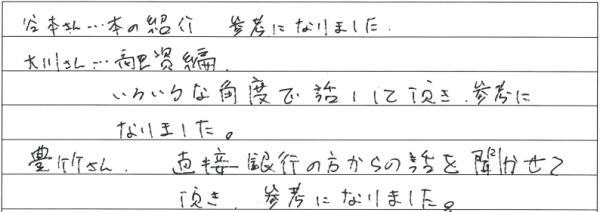 谷本さん…本の紹介 参考になりました.
大川さん…融資編.
いろいろな角度で話して頂き、参考に
なりました。
豊竹さん. 直接銀行の方からの話を聞かせて
頂き、参考になりました。